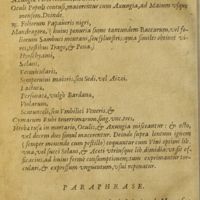 Oculi Populi contusi, macerentur cum Axungia, ad Maium usque
mensem. Deinde
℞. Foliorum Papaveris nigri,
Mandragoræ, (huius penuria sume tantundem Baccarum, vel
foliorum Sambuci montani, seu sylvestris: qua similes obtinet vi-
res, testibus Trago, & Pena)
Hyoscyami,
Solani,
Vermicularis,
Sempervivi maioris, seu Sedi, vel Aizoi,
Lactucæ,
Personatæ, vulgo Bardanæ,
Violarum,
Scatuncelli, seu Umbilici Veneris, &
Cymarum Rubi tenerrimarum, sing. unc. tres,
Herbæ tusæ in mortario, Oculis, & Axungia misceantur: & osto,
vel decem dies simul macerentur. Demum super lentum ignem
(semper movendo cum pistillo) coquantur cum Vini optimi lib.
una, vel succi Solani, & Aceti utriusque lib. dimidia, vasis fi-
ctilibus, ad horum fermè consumptionem; tum exprimantur torcu-
lari, & expressum unguentum, usui reponatur.
PARAPHRASE.